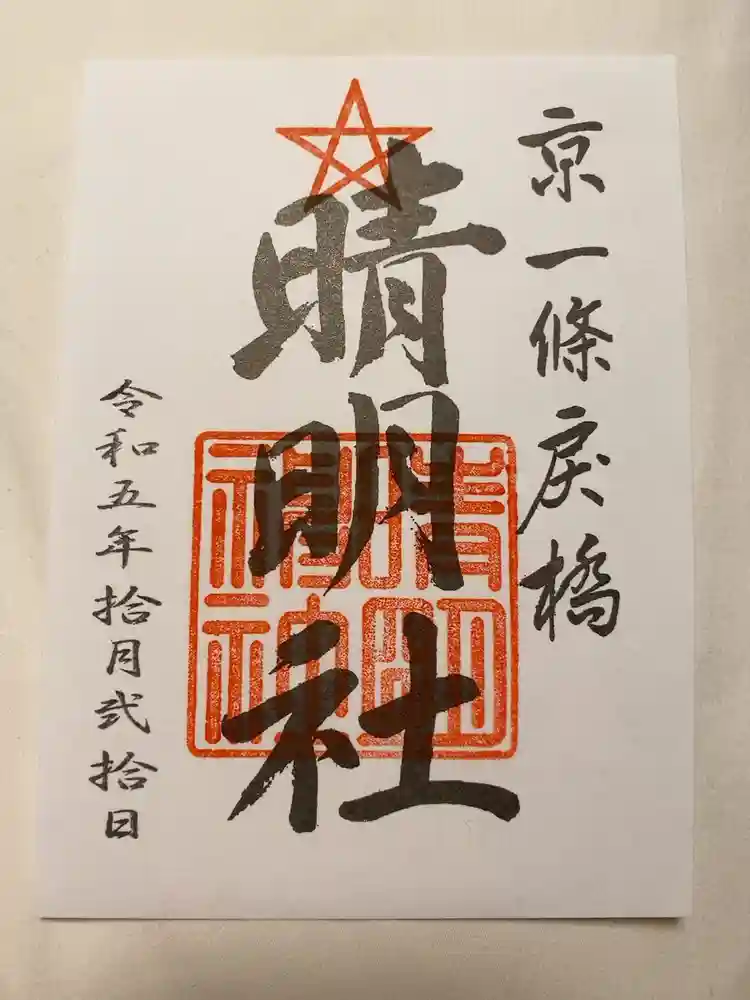 京一條戻橋
晴明社
晴明神社
令和五年拾月弐拾日